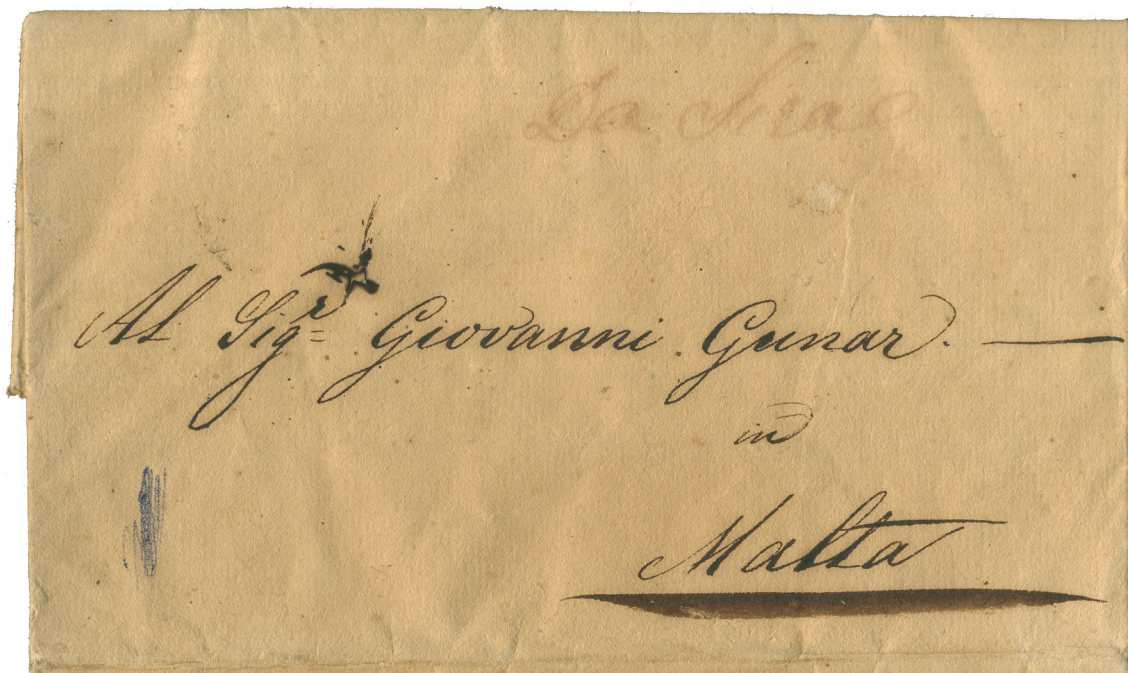 Da Sira
Al Sigr= Giovanni Gunar. —
in
Malta